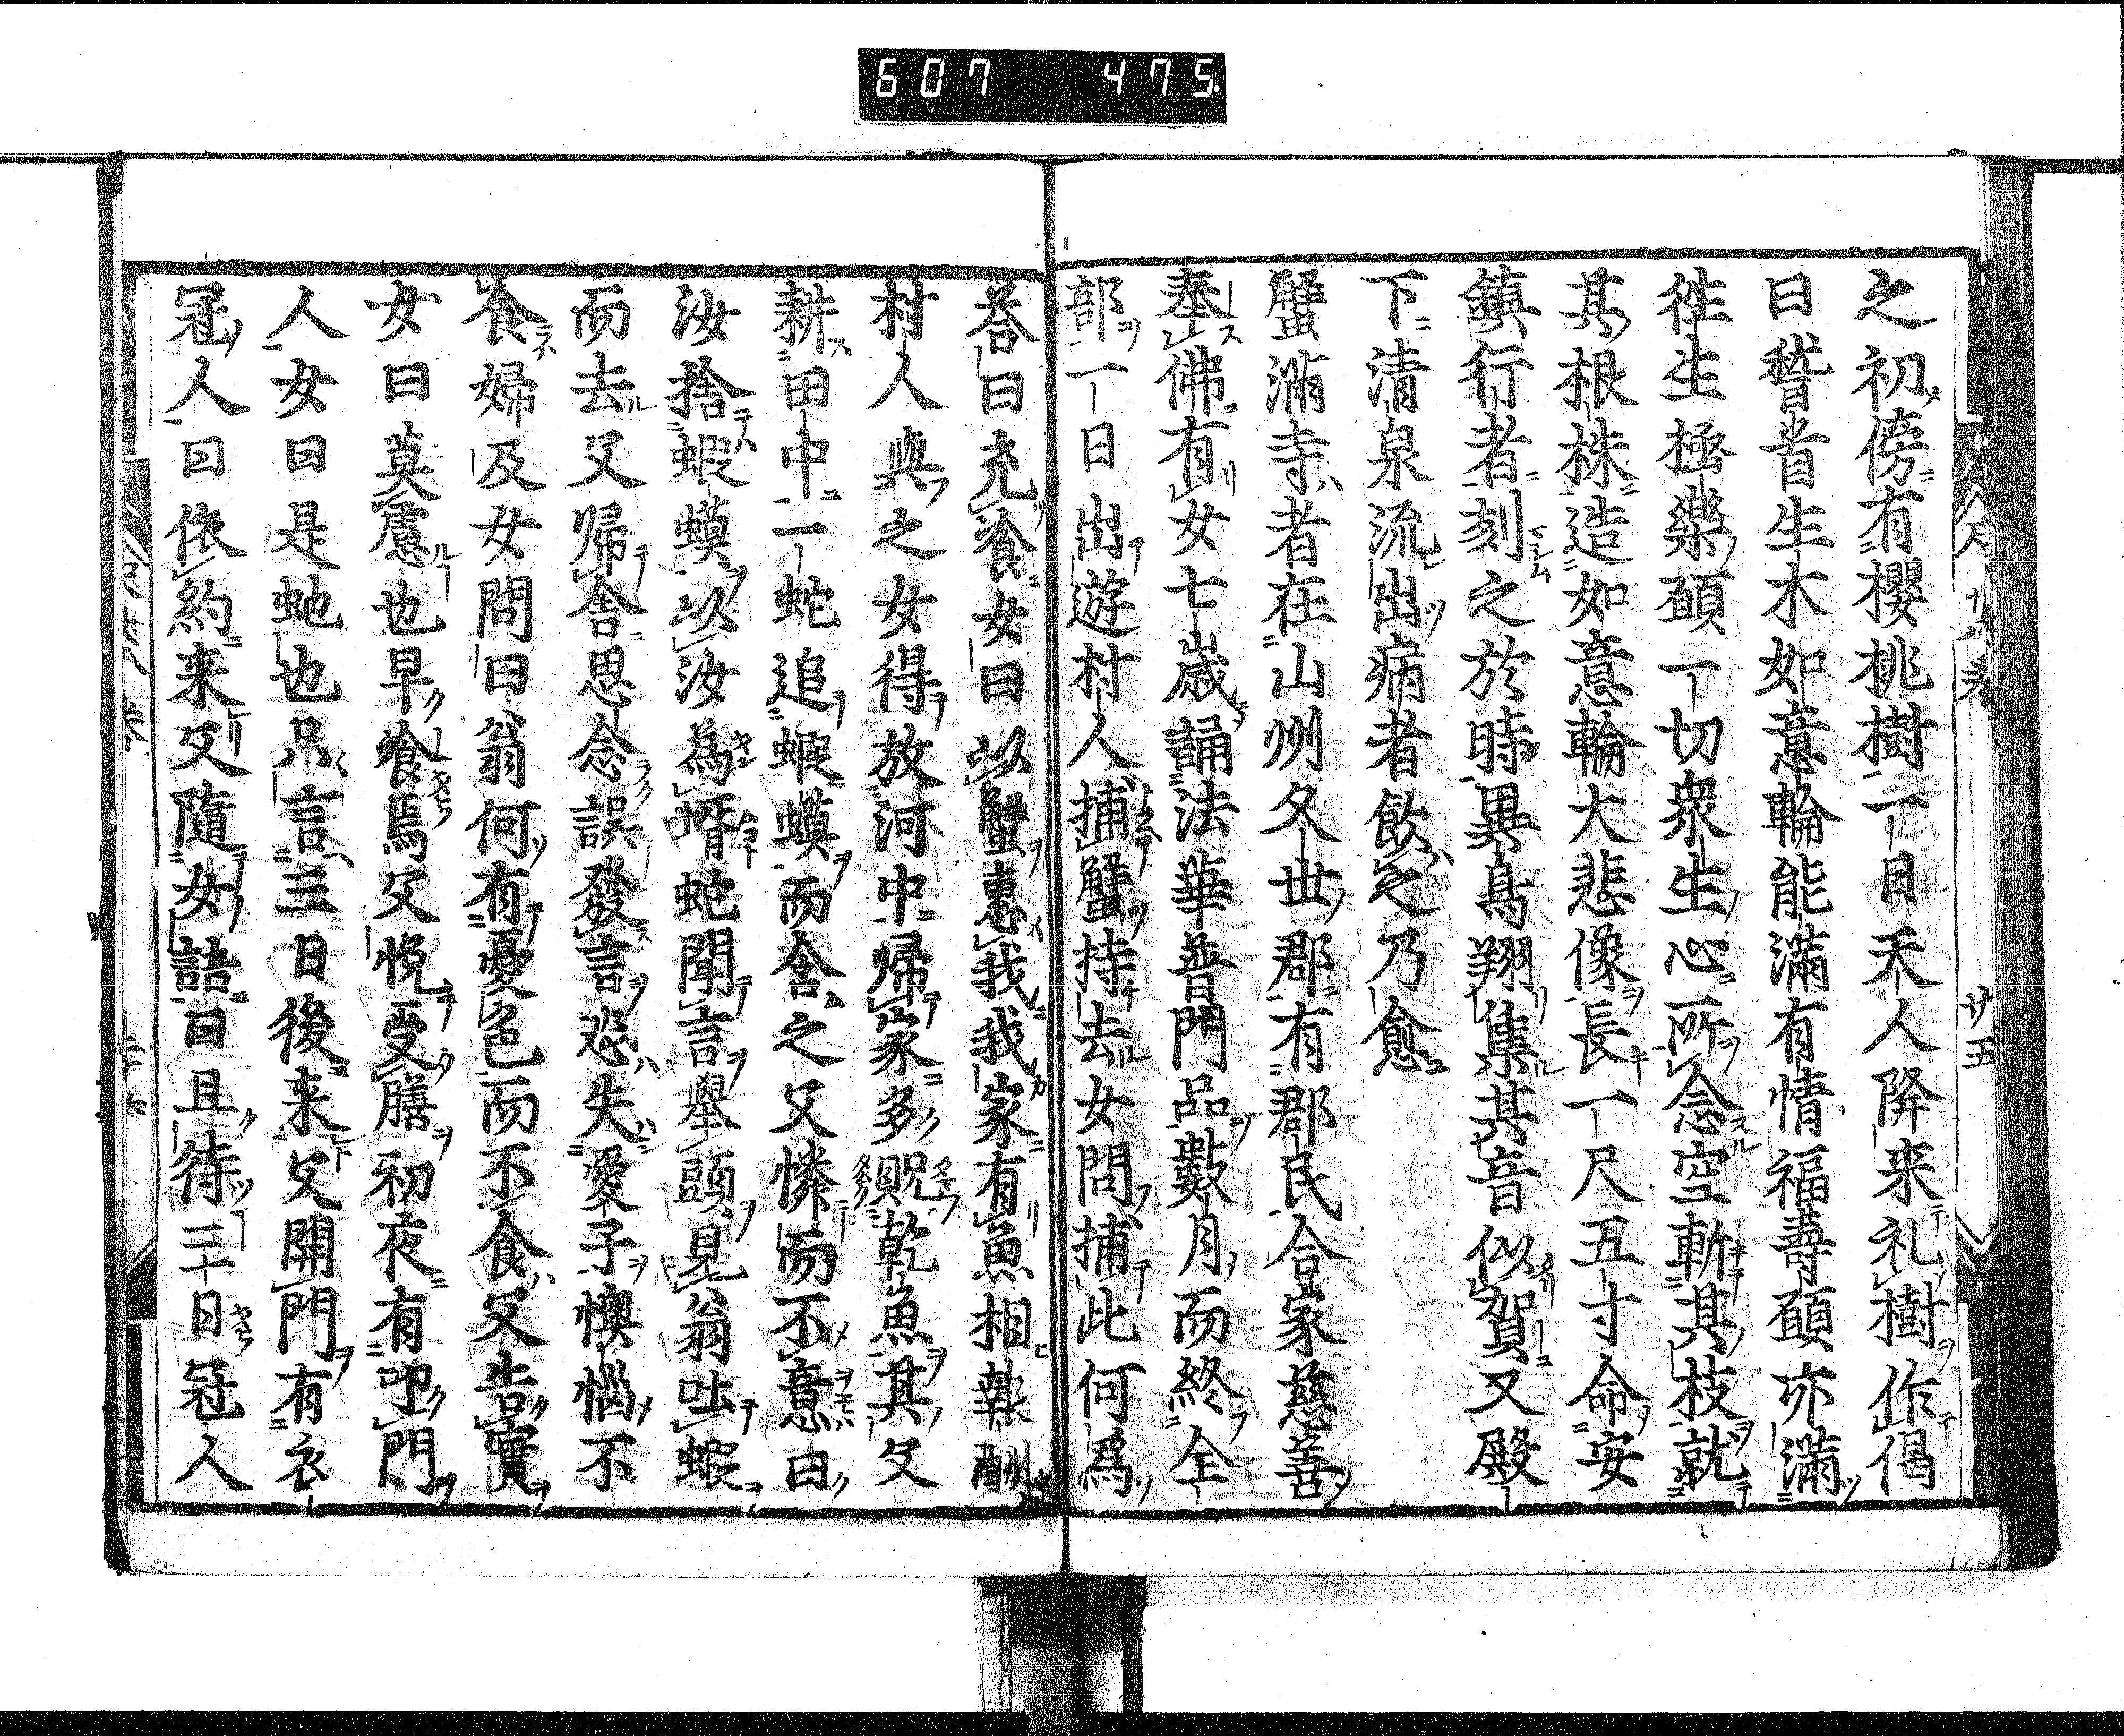 607 475
之初傍有櫻桃樹一日天人降来礼樹作偈
曰稽首生木如意輪能滿有情福壽願亦滿
徃生極樂願一切衆生心所念空斬其枝就
其根株造如意輪大悲像長一尺五寸命安
鎮行者刻之於時異鳥翔集其音似賀又殿
下清泉流出病者飲之乃愈
蟹滿寺者在山州久世郡有郡民合家慈善
奉佛有女七歳誦法華普門品數月而終全
部一日出遊村人捕蟹持去女問捕此何爲
荅曰充飡女曰以蟹惠我我家有魚相報酬
村人與之女得放河中歸家多貺乾魚其父
耕田中一蛇追蝦蟆而含之父憐而不意曰
汝捨蝦蟆以汝為壻蛇聞言舉頭見翁吐蝦
而去父歸舎思念誤發言恐失愛子懊惱不
飡婦及女問曰翁何有憂色而不食父告實
女曰莫慮也早飡焉父悦受膳初夜有叩門
人女曰是虵也只言三日後来父開門有衣
冠人曰依約来父隨女語曰且待三日冠人